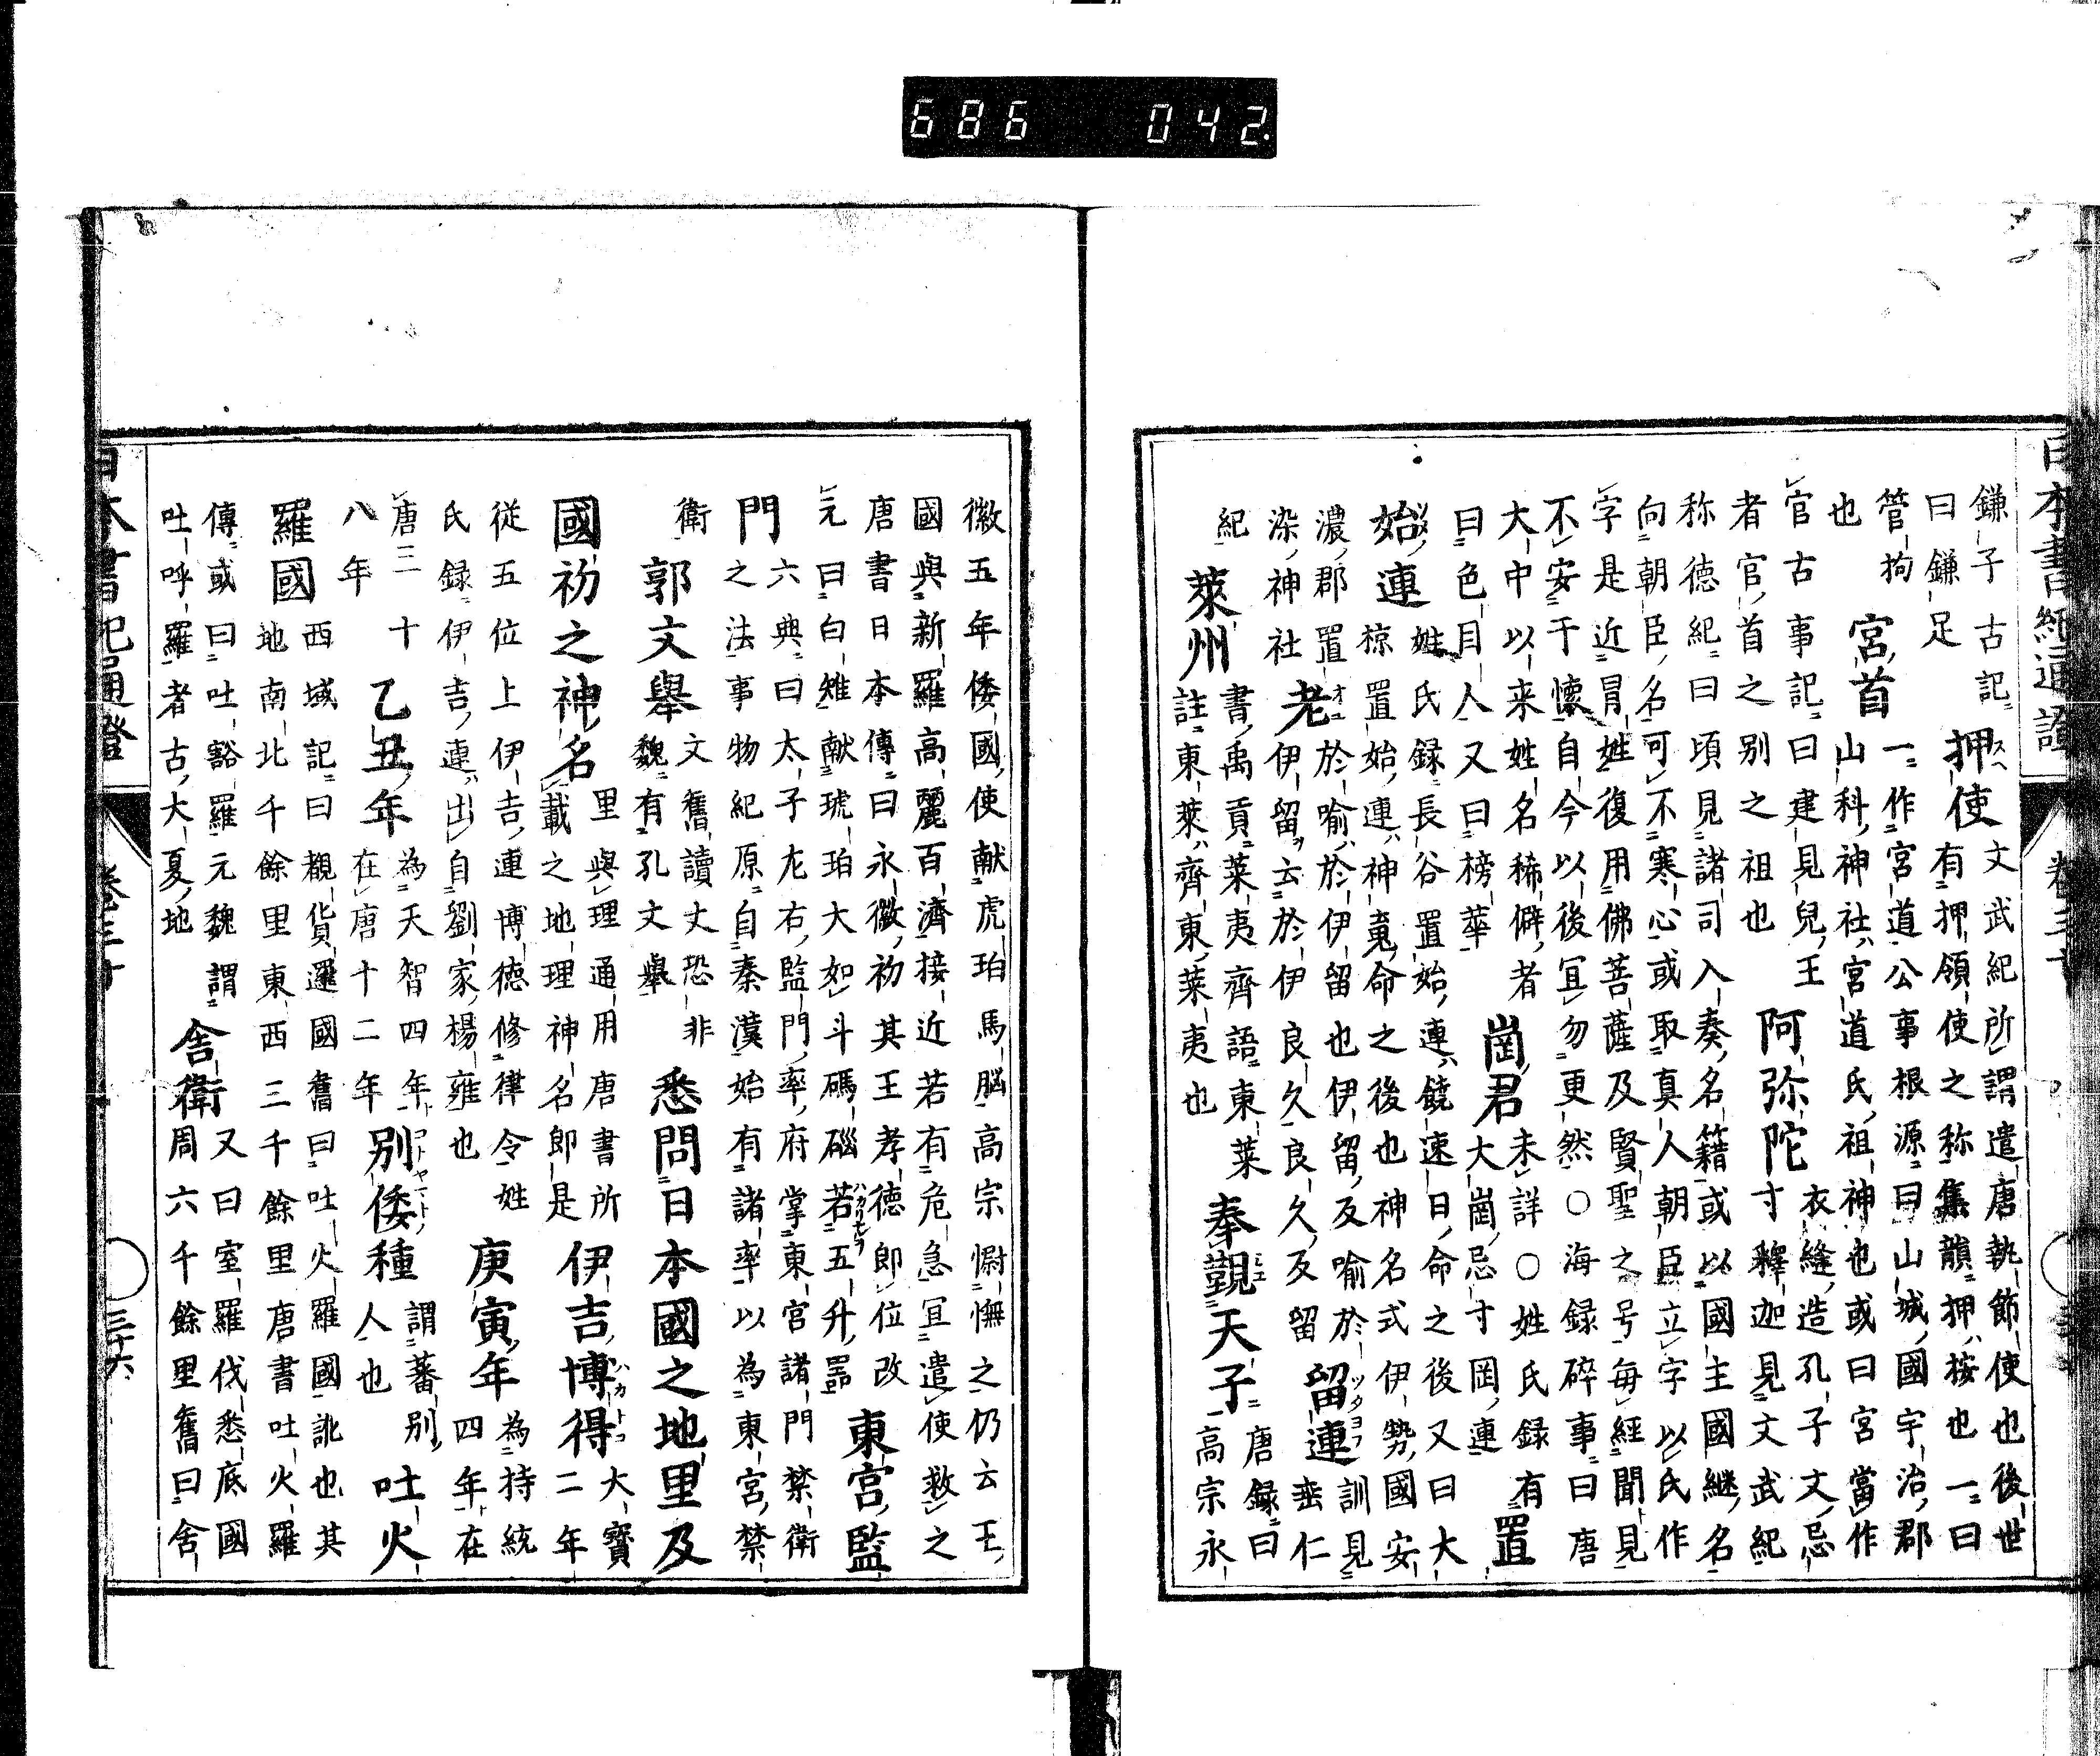 686 042
鎌子古記
曰鎌足
押使
文武紀所謂遣唐執節使也後世
有押領使之称集韻押按也一曰
管拘
也
宮首
一作宮道公事根源曰山城國宇治郡
山科神社宮道氏祖神也或曰宮當作
官古事記曰建見兒王
者官首之别之祖也
阿弥陀
衣縫造孔子文忌
寸釋迦見文武紀
称徳紀曰頃見諸司入奏名籍或以國主國継名
向朝臣名可不寒心或取真人朝臣立字以氏作
字是近冒姓復用佛菩薩及賢聖之号毎經聞見
不安于懷自今以後冝勿更然○海録碎事曰唐
大中以来姓名稀僻者
曰色目人又曰榜華
崗君
未詳○姓氏録有
大崗忌寸岡連
置
始連
姓氏録長谷置始連饒速日命之後又曰大
椋置始連神㝹命之後也神名式伊勢國安
濃郡置
染神社
老
於喻於伊留也伊留反喻於
伊留云於伊良久良久反留
留連
訓見
垂仁
紀
萊州
書禹貢萊夷齊語東萊
註東萊齊東萊夷也
奉覲天子
唐録曰
高宗永
徽五年倭國使献虎珀馬脳高宗慰憮之仍云王
國與新羅高麗百濟接近若有危急冝遣使救之
唐書日本傳曰永徽初其王孝德即位改
元曰白雉献琥珀大如斗碼碯若五升噐
東宮監
門
六典曰太子左右監門率府掌東宮諸門禁衛
之法事物紀原自秦漢始有諸率以為東宮禁
衛
郭文舉
文舊讀丈恐非
魏有孔文舉
悉問日本國之地里及
國初之神名
里與理通用唐書所
載之地理神名即是
伊吉博得
大寳
二年
從五位上伊吉連博德修律令姓
氏録伊吉連出自劉家楊雍也
庚寅年
為持統
四年在
唐三十
八年
乙丑年
為天智四年
在唐十二年
别倭種
謂蕃别
人也
吐火
羅國
西域記曰覩貨邏國舊曰吐火羅國訛也其
地南北千餘里東西三千餘里唐書吐火羅
傳或曰吐豁羅元魏謂
吐呼羅者古大夏地
舍衛
又曰室羅伐悉底國
周六千餘里舊曰舍